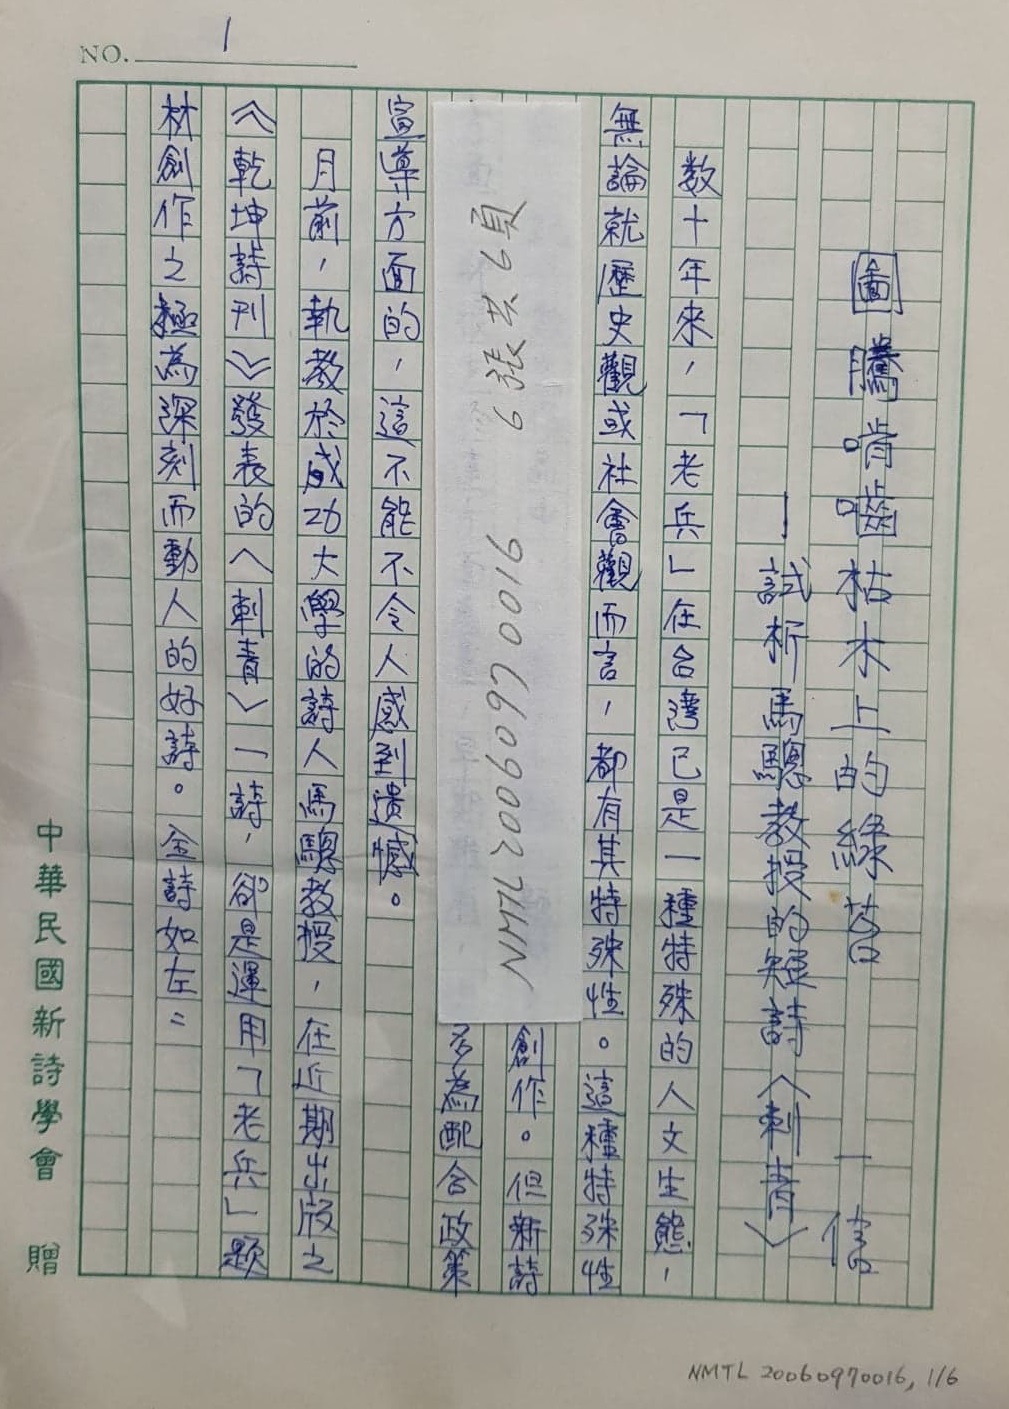 NO. 1
圖騰啃嚙枯木上的綠苔 一信
——試析馬驄教授的短詩〈刺青〉
數十年來,「老兵」在台灣已是一種特殊的人文生態,
無論就歷史觀或社會觀而言,都有其特殊性。這種特殊性
創作。但新詩
多為配合政策
宣導方面的,這不能不令人感到遺憾。
月前,執教於成功大學的詩人馬驄教授,在近期出版之
《乾坤詩刊》發表的〈刺青〉一詩,卻是運用「老兵」題
材創作之極為深刻而動人的好詩。全詩如左:
NMTL20060970016 6張共6頁
中華民國新詩學會 贈
NMTL 20060970016, 1/6